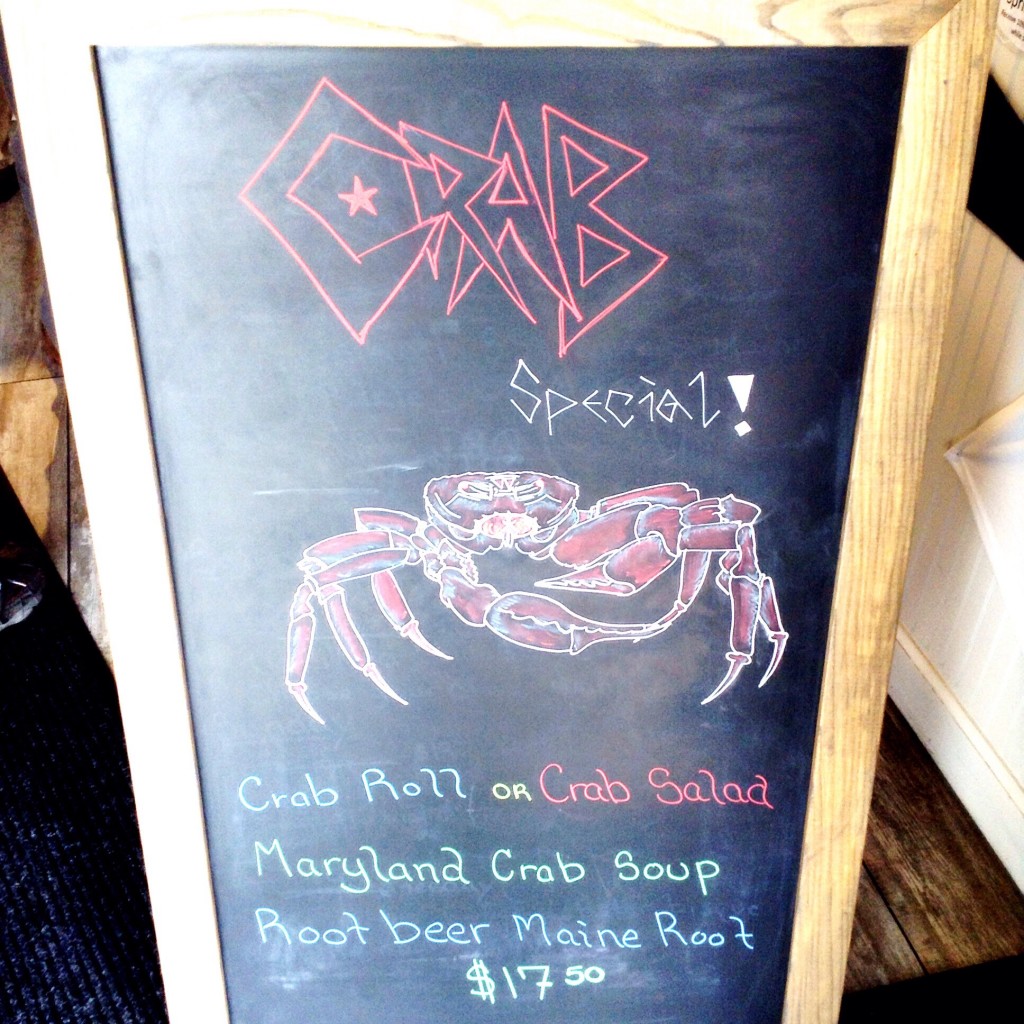 CRAB
Special!
Crab Roll OR Crab Salad
Maryland Crab Soup
Root beer Maine Root
$17 50